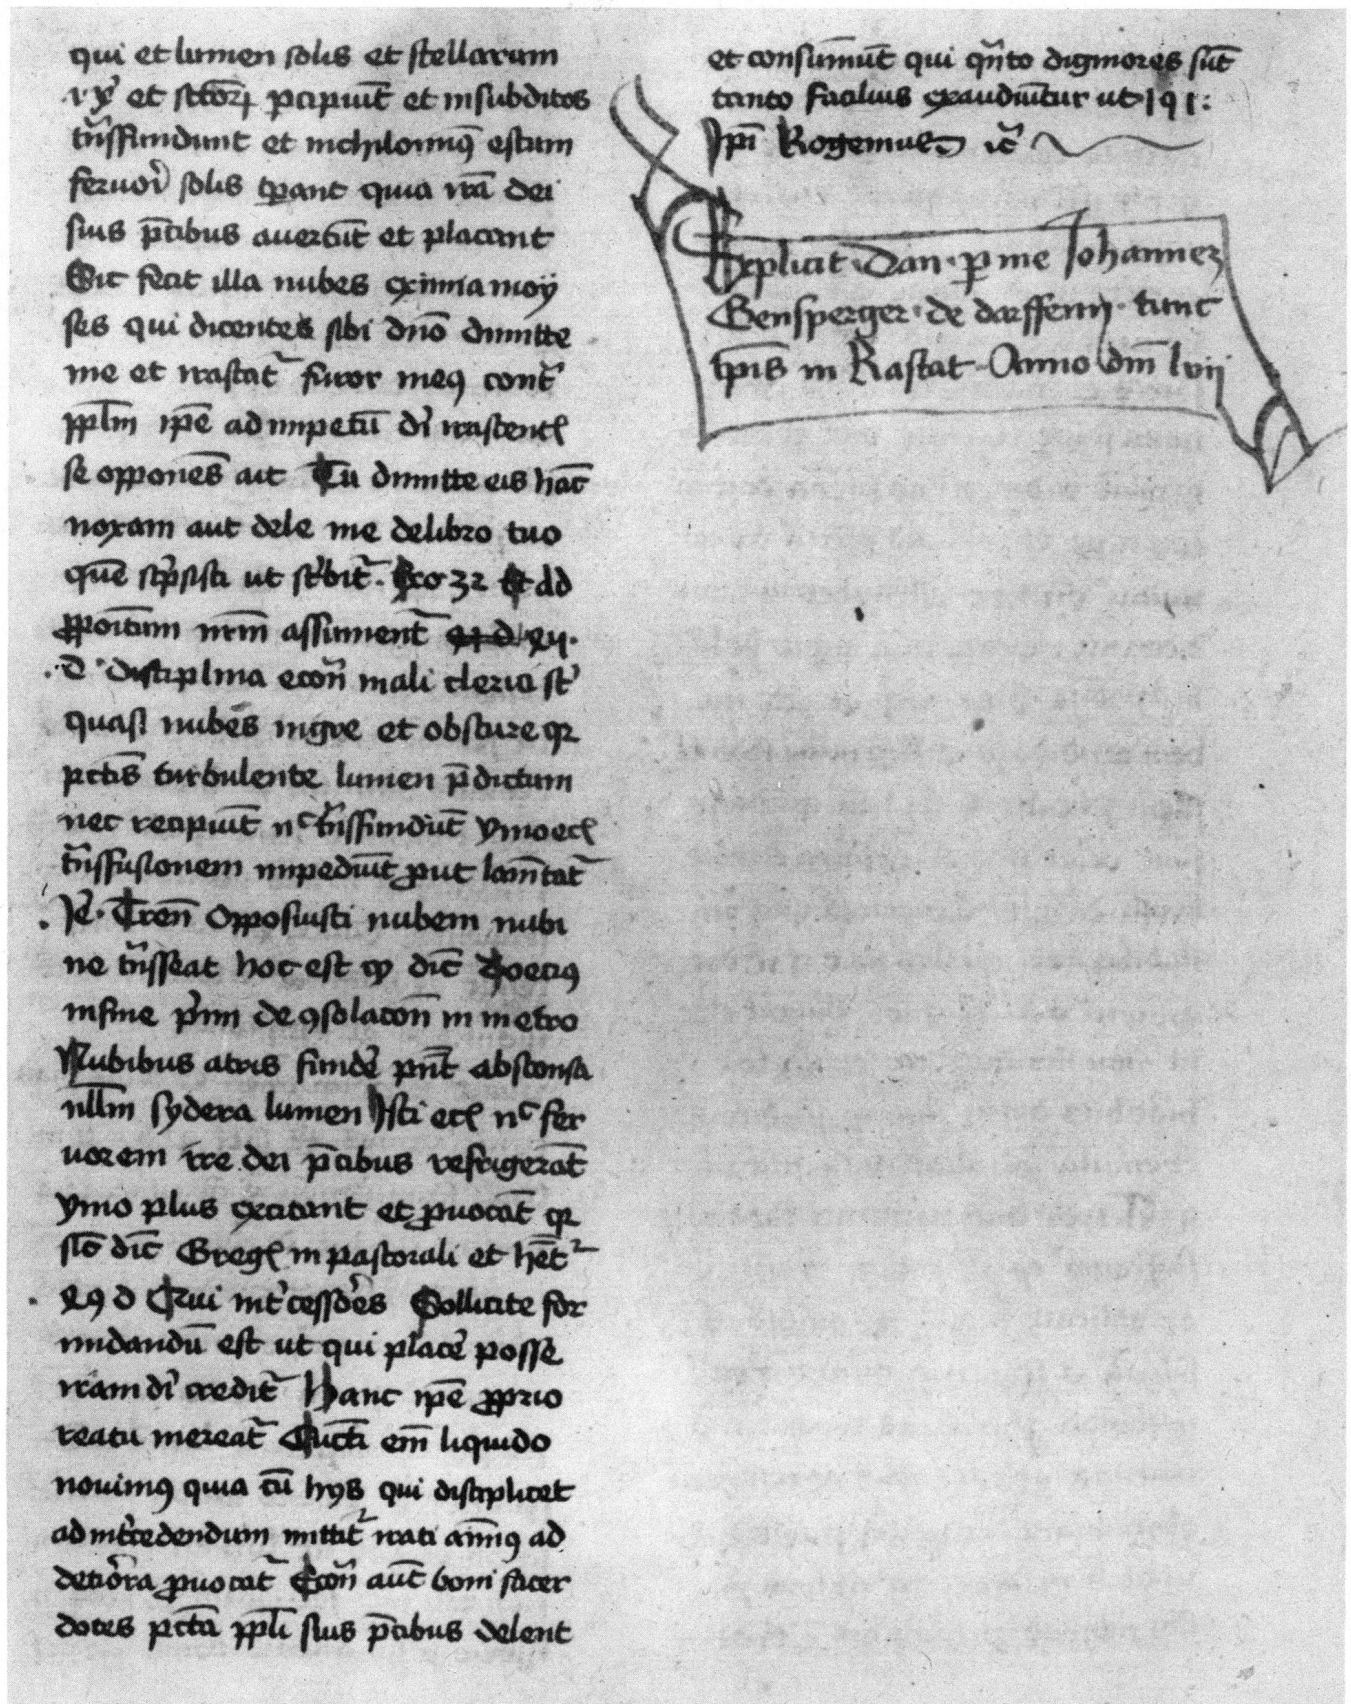 qui et lumen solis et stellarum
et sctōrꝝ ꝑcipiūt et in subditos
tⁿsfundunt et nichilominꝰ estum
feruorͥ solis tꝑant quia irā dei
suis p̄cibus auertūt et placant
Sic fecit illa nubes eximia moy
ses qui dicentes sibi dnō dimitte
me et irascatʳ furor meꝰ contᵃ
ppl̄m ip̄e ad impetū di irascentꝭ
se opponēs ait Tu dimitte eis hāc
noxam aut dele me de libro tuo
quē scͥpsisti ut scͥbitʳ. Exo 32 Et ad
ꝓpoītum nrm̄ assumentʳ
disciplina econͣ mali clerici st̄
quasi nubes nigre et obscure qꝛ
pctīs turbulente lumen p̄dictum
nec recipiūt nᶜ tⁿsfundūt ymo ecꝭ
tⁿsfusionem impediūt ꝓut lamētatʳ
Je͛. Tren̄ Opposuisti nubem nubi
ne tⁿsseat hoc est ꝙ dic̄ Boecius
in fine pͥmi de ꝯsolacōn in metro
Nubibus atris fundē pn̄t absconsa
null̄m sydera lumen Isti ecꝭ nᶜ fer
uorem ire dei p̄cibus refrigerāt
ymo plus excitant et ꝓuocāt qꝛ
sic̄ dic̄ Gregꝭ in pastorali et hētʳ
Qui intᵉcessōres Sollicite for
midandū est ut qui placē posse
iram di creditʳ Hanc ip̄e ꝓprio
reatu mereatʳ Cūcti em̄ liquido
nouimꝰ quia cū hys qui displicet
ad intᵉcedendum mittitʳ irati animꝰ ad
deteriora ꝓuocatʳ Econͣ aūt boni sacer
dotes pctā ppl̄i suis p̄cibus delent
et consumūt qui qⁿto digniores sūt
tanto facilius exaudiūtur ut 1 q 1:
Ip̄i Rogemus
Explicit Dan ꝑ me Johannez
Gensperger de dorffenn tunc
tp̄is in Rastat Anno dm̄ lvij